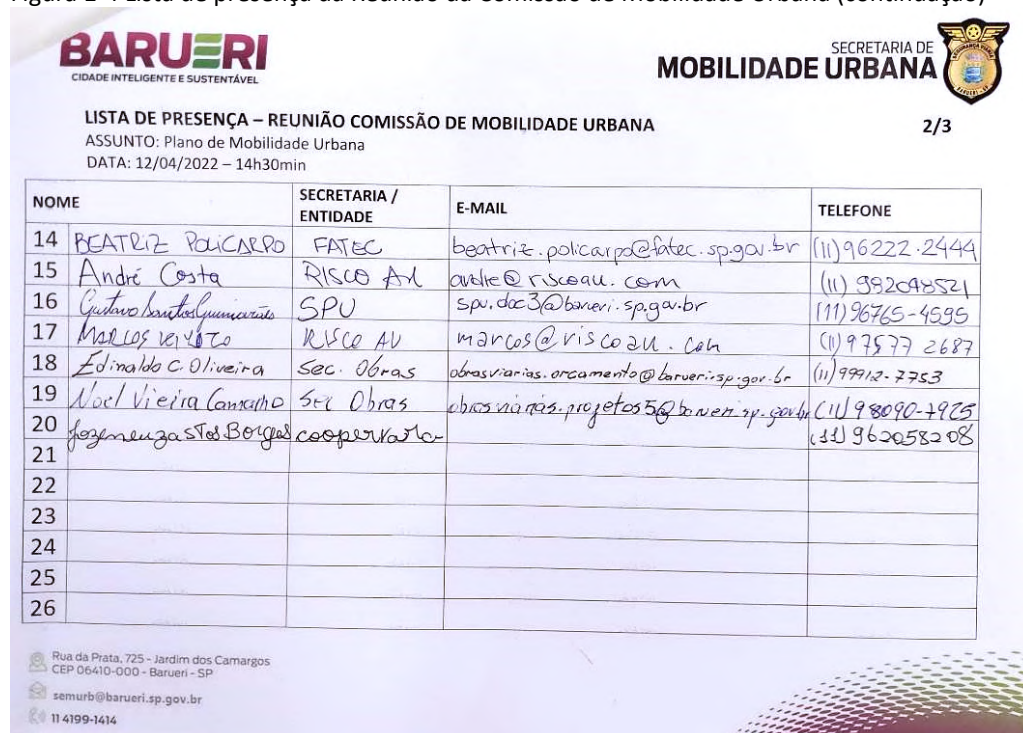 Lista de presença da Reunião da Comissão de Mobilidade Urbana (continuação)
BARUERI
CIDADE INTELIGENTE E SUSTENTÁVEL
SECRETARIA DE
MOBILIDADE URBANA
LISTA DE PRESENÇA – REUNIÃO COMISSÃO DE MOBILIDADE URBANA 2/3
ASSUNTO: Plano de Mobilidade Urbana
DATA: 12/04/2022 – 14h30min
NOME SECRETARIA / ENTIDADE E-MAIL TELEFONE
14 BEATRIZ POLICARPO FATEC beatriz.policarpo@fatec.sp.gov.br (11)96222-2444
15 André Costa RISCO AU andre@riscoau.com (11) 982048521
16 Gustavo Santos Guimarães SPU spu.doc3@barueri.sp.gov.br (11)96765-4595
17 MARCOS RISCO AU marcos@riscoau.com (11) 97577 2687
18 Edinaldo C. Oliveira Sec. Obras obrasviarias.orcamento@barueri.sp.gov.br (11)99912-7753
19 Noel Vieira Camargo Sec Obras obrasviarias.projetos5@barueri.sp.gov.br (11)98090-7925
20 (11) 962058208
21
22
23
24
25
26
Rua da Prata, 725 - Jardim dos Camargos
CEP 06410-000 - Barueri - SP
semurb@barueri.sp.gov.br
11 4199-1414